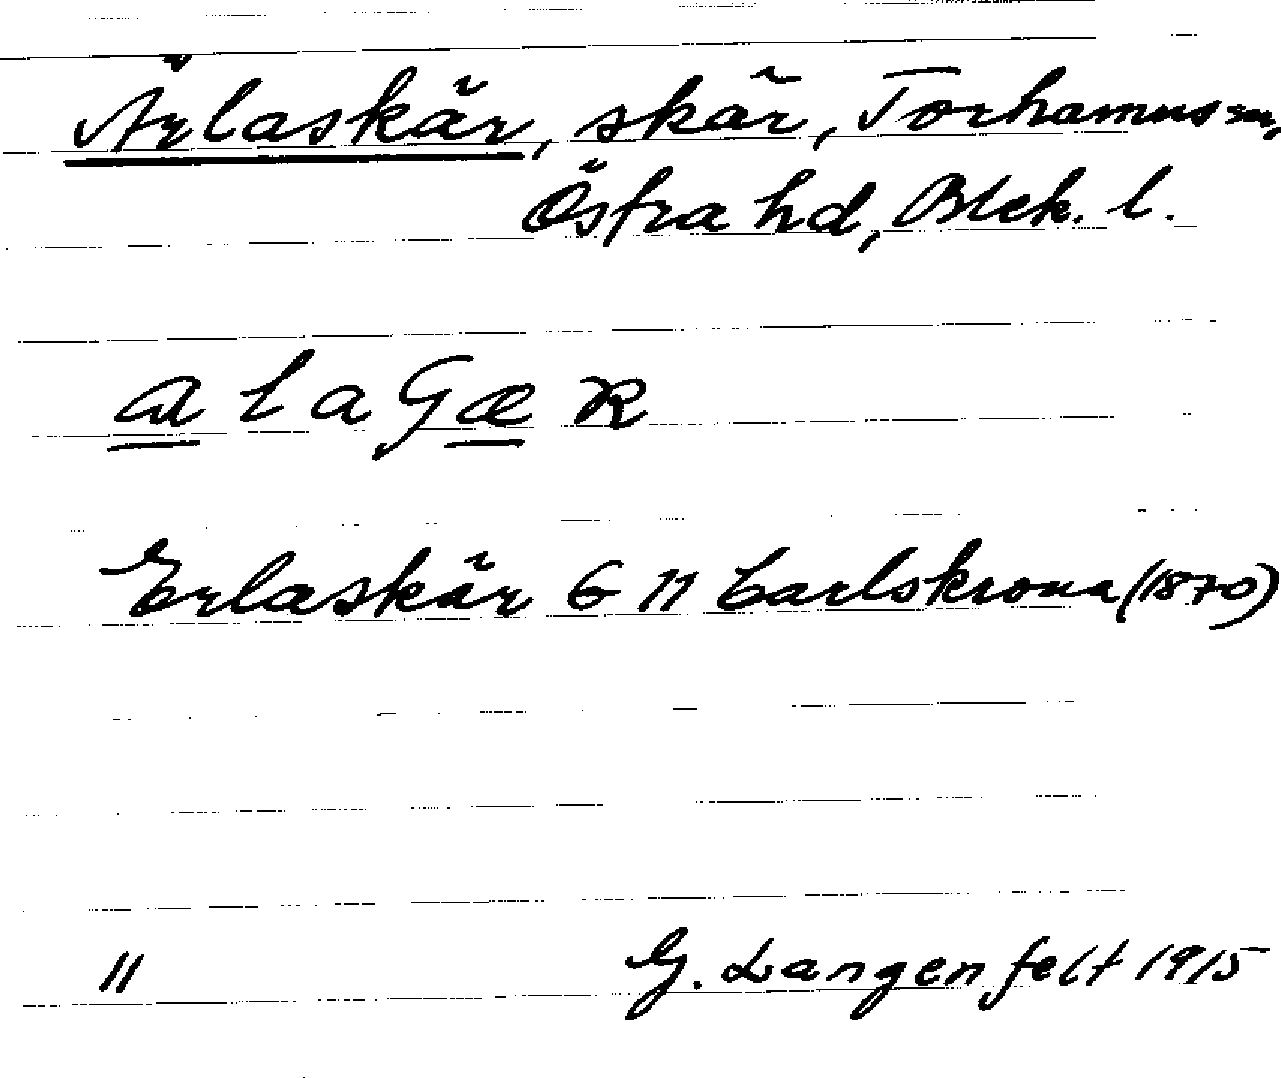 Ärlaskär, skär, Torhamns sn,
Östra hd, Blek. l.
a l a G æ R
Erlaskär G 11 Carlskrona (1870)
11 G. Langenfelt 1915